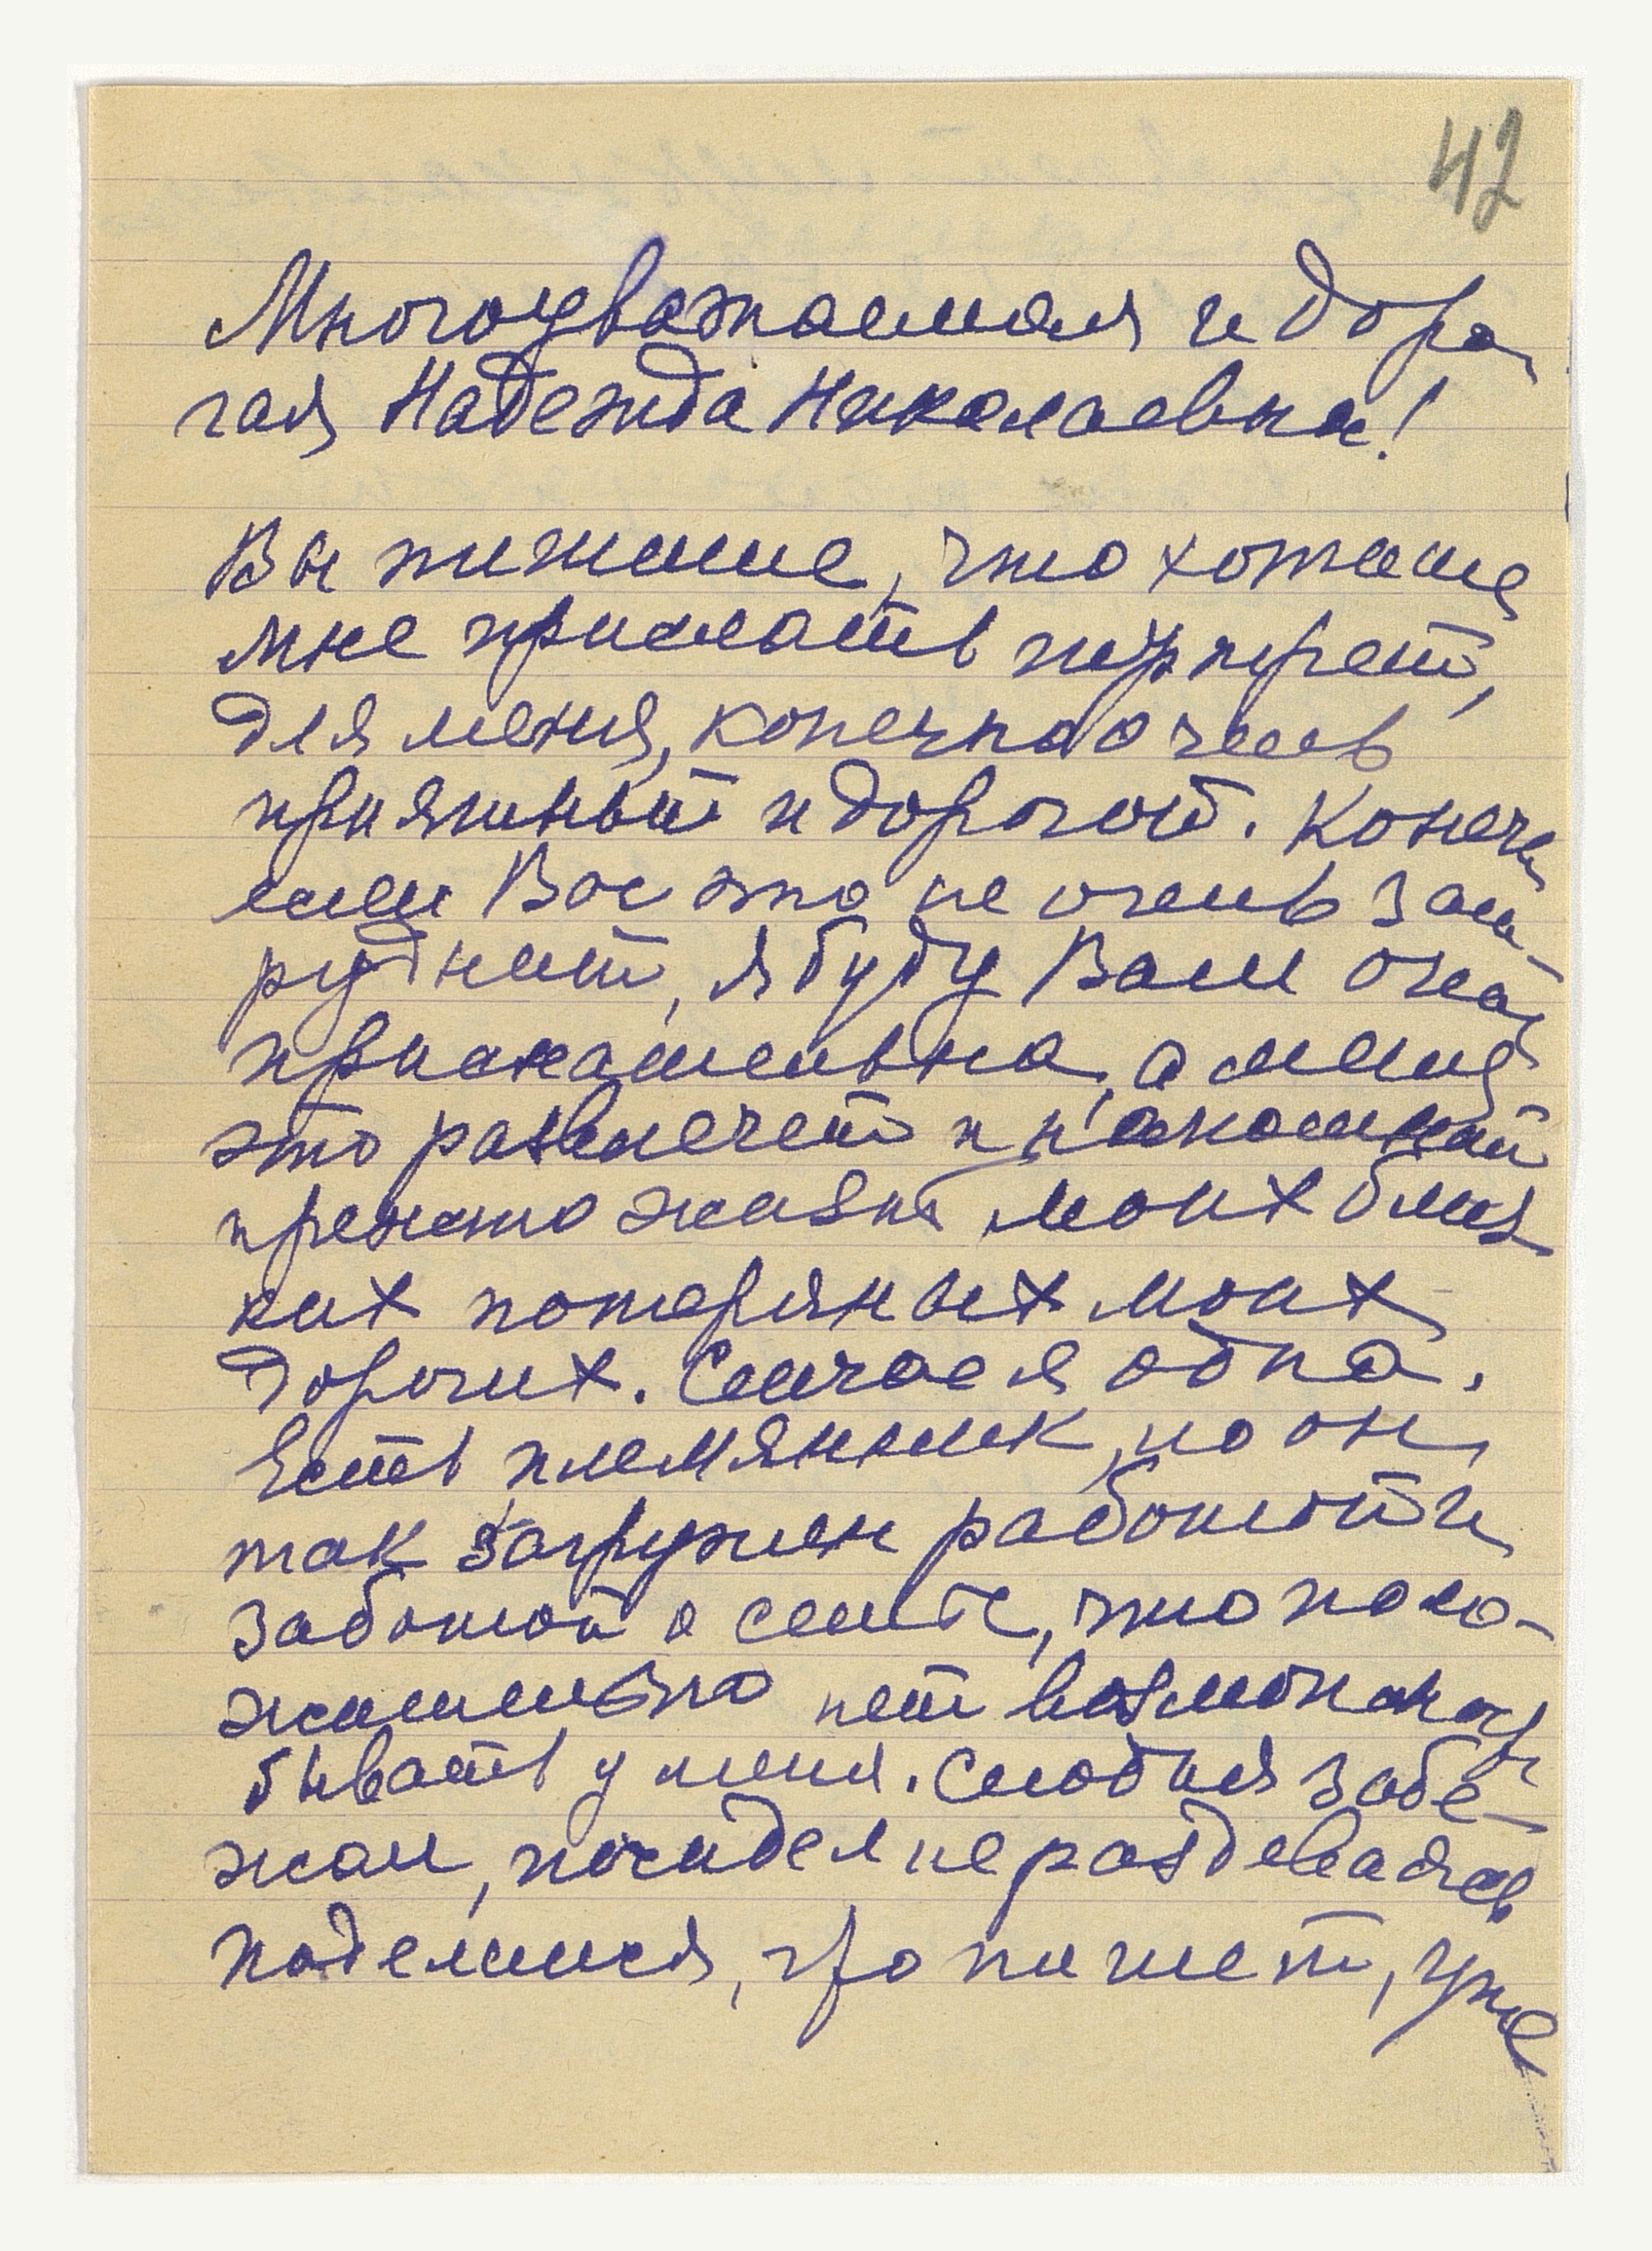 42
Многоуважаемая и доро
гая Надежда Николаевна!
Вы пишете, что хотите
мне прислать портрет,
для меня, конечно очень
приятный и дорогой. Конечн
если Вас это не очень зат-
руднит, я буду Вам очень
признательна, а меня
это развлечет и напомнит
прежнюю жизнь моих близ
ких потеряных моих
дорогих. Сейчас я одна.
Есть племянник, но он,
так загружен работой и
заботой о семье, что поло-
жительно нет возможности
бывать у меня. Сегодня забе-
жал, посидел не раздеваясь
поделился, что пишет, уже